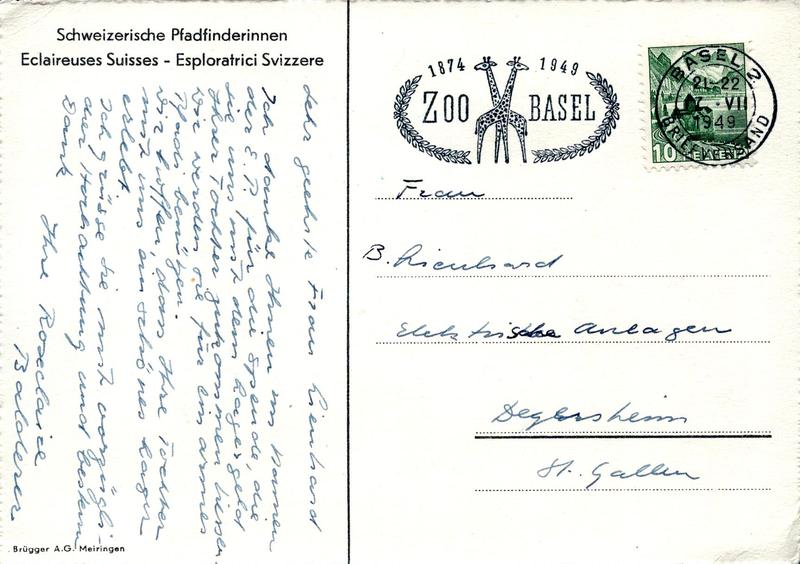 Schweizerische Pfadfinderinnen
Eclaireuses Suisses - Esploratrici Svizzere
Sehr geehrte Frau Lienhard
Ich danke Ihnen im Namen
der E.P. für die Spende, die
Sie uns mit dem Lagergeld
Ihrer Tochter zukommen liessen
Wir werden sie für ein armes
Pfadi benützen.
Wir hoffen, dass Ihre Tochter
mit uns ein schönes Lager
erlebt.
Ich grüsse Sie mit vorzügli-
cher Hochachtung und bestem
Dank
Ihre Roseclaire
Balderer
Brügger A.G. Meiringen
1874 1949
ZOO BASEL
BASEL 2
21-22
VII
1949
BRIEFVERSAND
10 HELVETIA
Frau
B. Lienhard
Elektrische Anlagen
Degersheim
St. Gallen